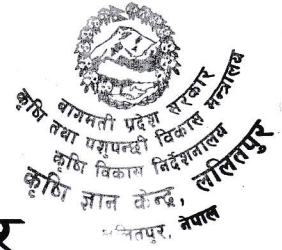 बागमती प्रदेश सरकार
कृषि तथा पशुपन्छी विकास मन्त्रालय
कृषि विकास निर्देशनालय
कृषि ज्ञान केन्द्र, ललितपुर
ललितपुर, नेपाल
र